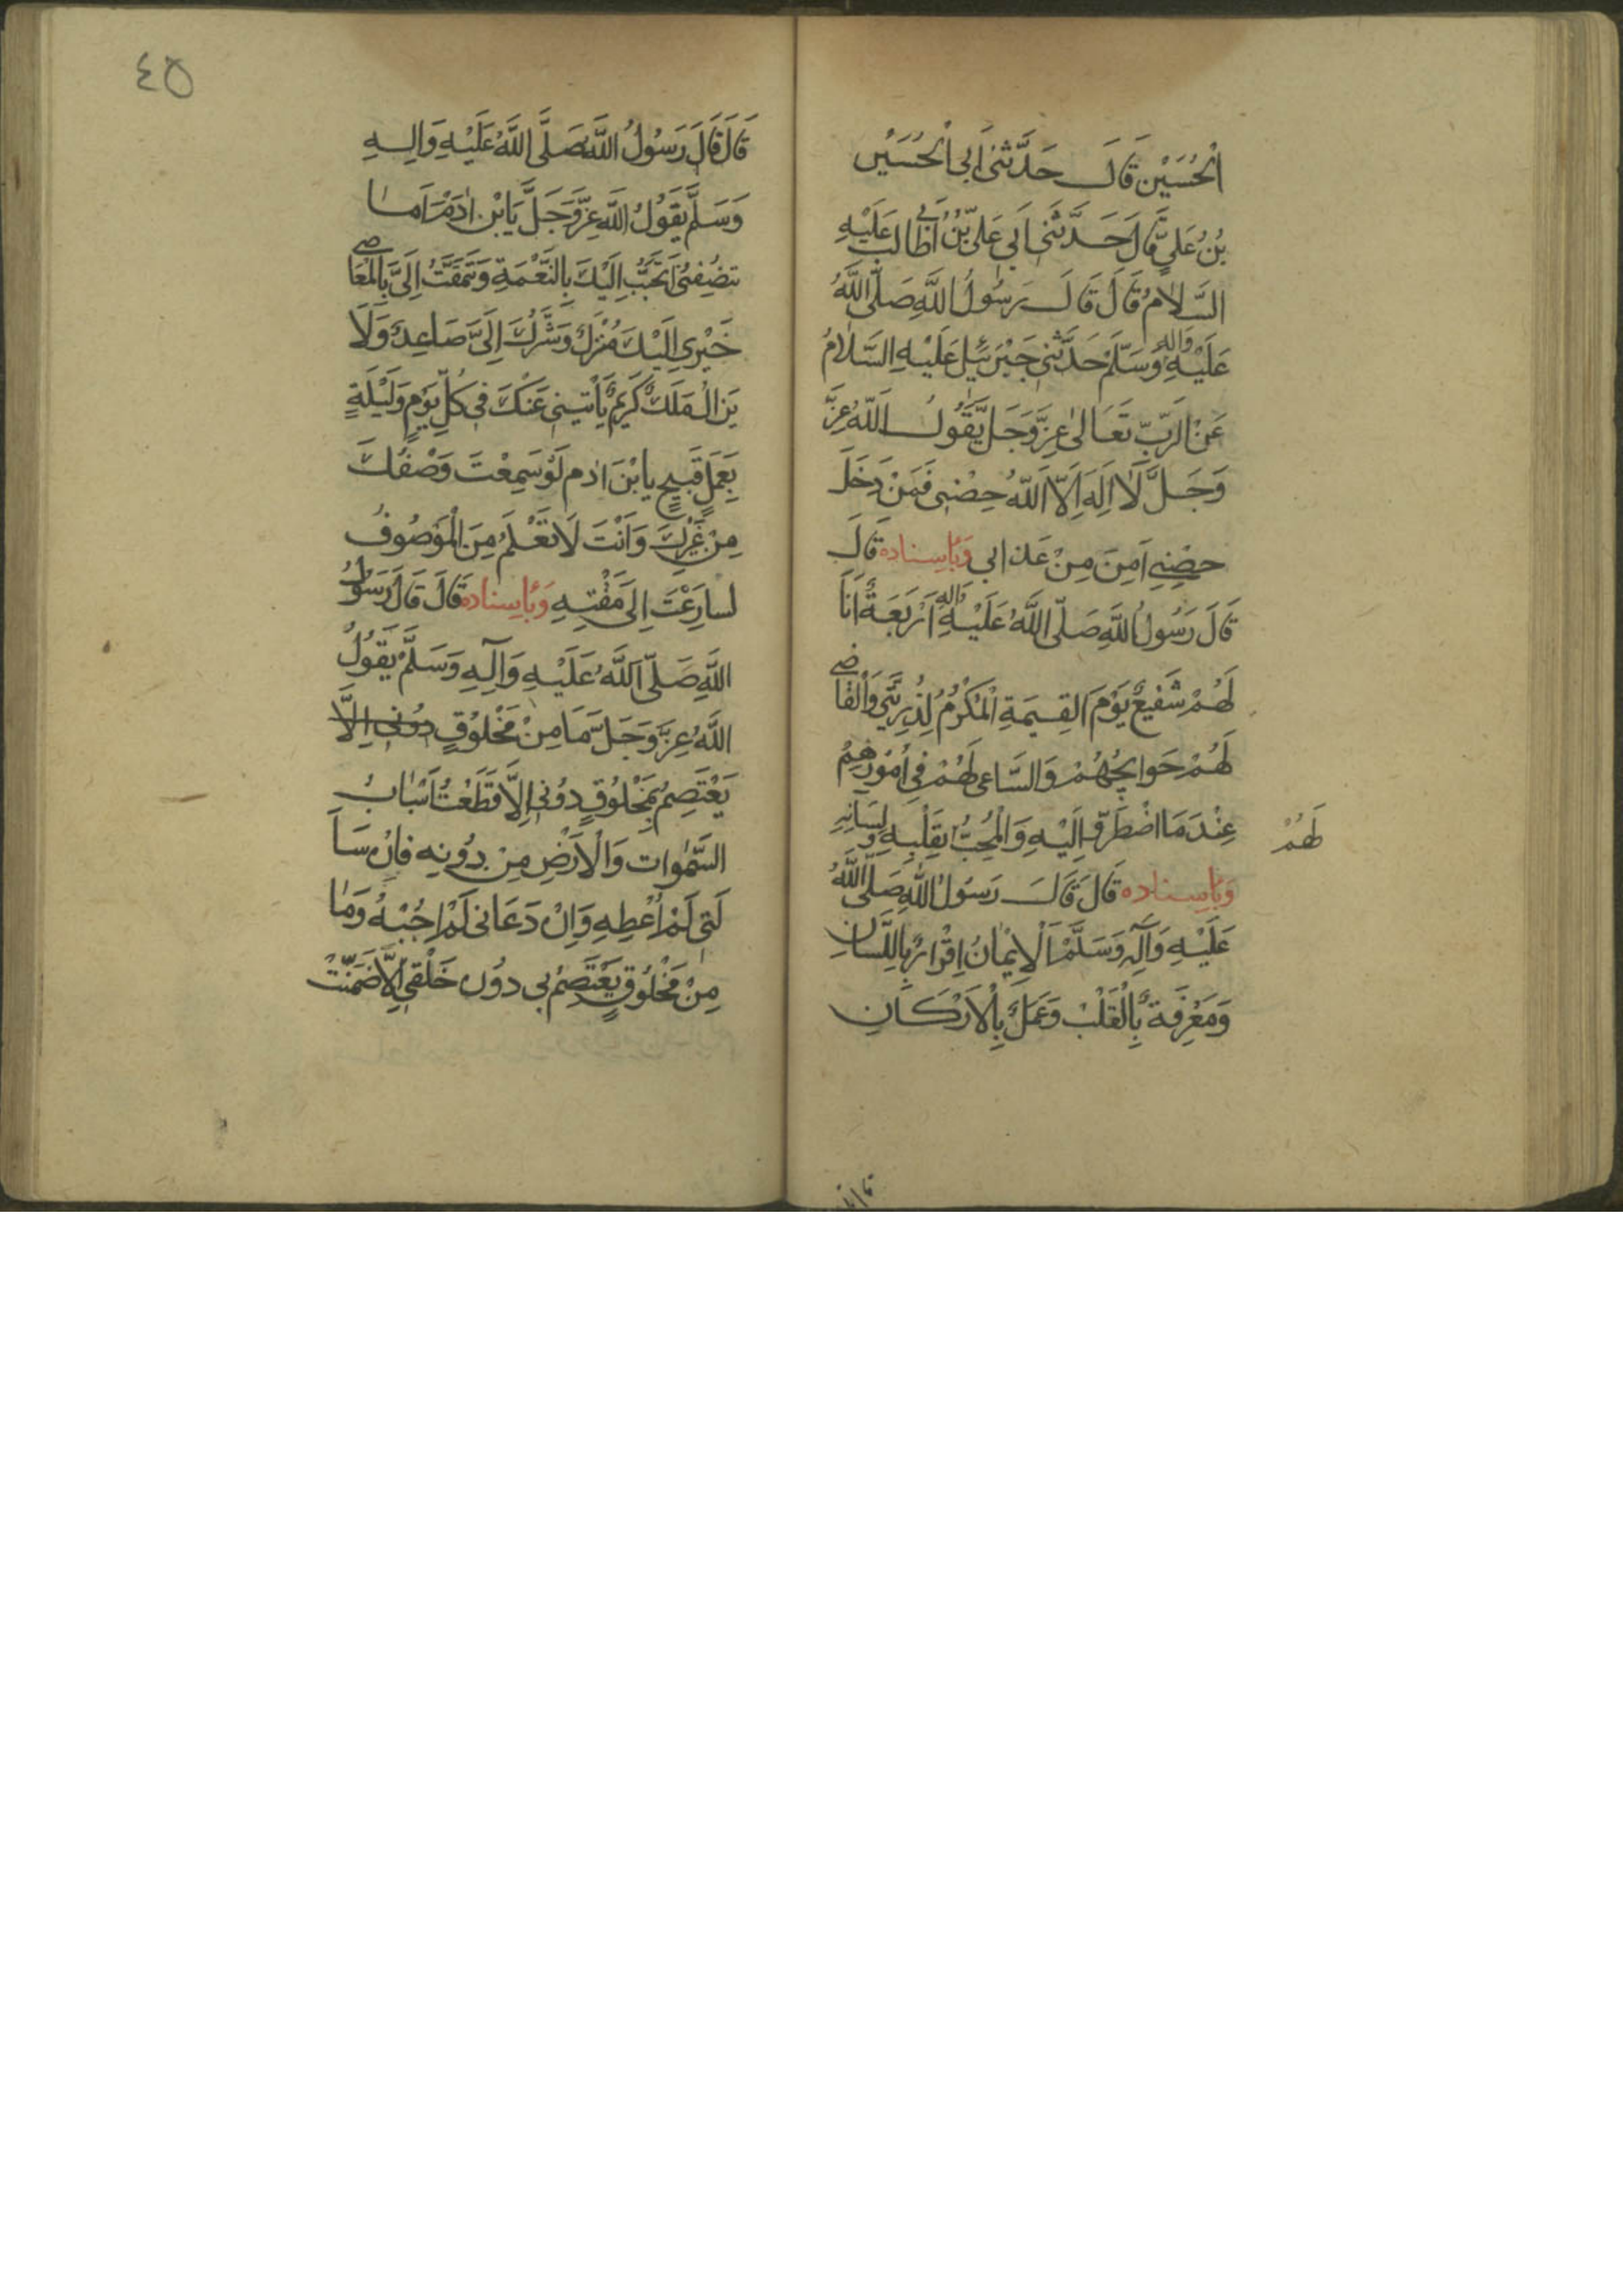 الْحُسَيْنِ قَالَ حَدَّثَنِي أَبِي الْحُسَيْنِ
بْنُ عَلِيٍّ قَالَ حَدَّثَنِي أَبِي عَلِيُّ بْنُ أَبِي طَالِبٍ عَلَيْهِ
السَّلَامُ قَالَ قَالَ رَسُولُ اللَّهِ صَلَّى اللَّهُ
عَلَيْهِ وَآلِهِ وَسَلَّمَ حَدَّثَنِي جَبْرَئِيلُ عَلَيْهِ السَّلَامُ
عَنْ الرَّبِّ تَعَالَىٰ عَزَّ وَجَلَّ يَقُولُ اللَّهُ عَزَّ
وَجَلَّ لَا إِلَهَ إِلَّا اللَّهُ حِصْنِي فَمَنْ دَخَلَ
حِصْنِي أَمِنَ مِنْ عَذَابِي وَبِإِسْنَادِهِ قَالَ
قَالَ رَسُولُ اللَّهِ صَلَّى اللَّهُ عَلَيْهِ وَآلِهِ أَرْبَعَةٌ أَنَا
لَهُمْ شَفِيعٌ يَوْمَ الْقِيَمَةِ الْمُكْرِمُ لِذُرِّيَّتِي وَالْقَاضِي
لَهُمْ حَوَايِجَهُمْ وَالسَّاعِي لَهُمْ فِي أُمُورِهِمْ
عِنْدَ مَا اضْطُرَّ إِلَيْهِ وَالْمُحِبُّ بِقَلْبِهِ وَلِسَانِهِ
لَهُمْ
وَبِإِسْنَادِهِ قَالَ قَالَ رَسُولُ اللَّهِ صَلَّى اللَّهُ
عَلَيْهِ وَآلِهِ وَسَلَّمَ الْإِيمَانُ إِقْرَارٌ بِاللِّسَانِ
وَمَعْرِفَةٌ بِالْقَلْبِ وَعَمَلٌ بِالْأَرْكَانِ
٤٥
قَالَ قَالَ رَسُولُ اللَّهِ صَلَّى اللَّهُ عَلَيْهِ وَآلِهِ
وَسَلَّمَ يَقُولُ اللَّهُ عَزَّ وَجَلَّ يَابْنَ آدَمَ أَمَا
تُنْصِفُنِي أَتَحَبَّبُ إِلَيْكَ بِالنِّعْمَةِ وَتَتَمَقَّتُ إِلَيَّ بِالْمَعَاصِي
خَيْرِي إِلَيْكَ مُنْزَلٌ وَشَرُّكَ إِلَيَّ صَاعِدٌ وَلَا
يَزَالُ مَلَكٌ كَرِيمٌ يَأْتِينِي عَنْكَ فِي كُلِّ يَوْمٍ وَلَيْلَةٍ
بِعَمَلٍ قَبِيحٍ يَابْنَ آدَمَ لَوْ سَمِعْتَ وَصْفَكَ
مِنْ غَيْرِكَ وَأَنْتَ لَا تَعْلَمُ مِنَ الْمَوْصُوفُ
لَسَارَعْتَ إِلَى مَقْتِهِ وَبِإِسْنَادِهِ قَالَ قَالَ رَسُولُ
اللَّهِ صَلَّى اللَّهُ عَلَيْهِ وَآلِهِ وَسَلَّمَ يَقُولُ
اللَّهُ عَزَّ وَجَلَّ مَا مِنْ مَخْلُوقٍ دُونِي إِلَّا
يَعْتَصِمُ بِمَخْلُوقٍ دُونِي إِلَّا قَطَعْتُ أَسْبَابَ
السَّمَٰوَاتِ وَالْأَرْضِ مِنْ دُونِهِ فَإِنْ سَأَ
لَنِي لَمْ أُعْطِهِ وَإِنْ دَعَانِي لَمْ أُجِبْهُ وَمَا
مِنْ مَخْلُوقٍ يَعْتَصِمُ بِي دُونَ خَلْقِي إِلَّا ضَمَّنْتُ